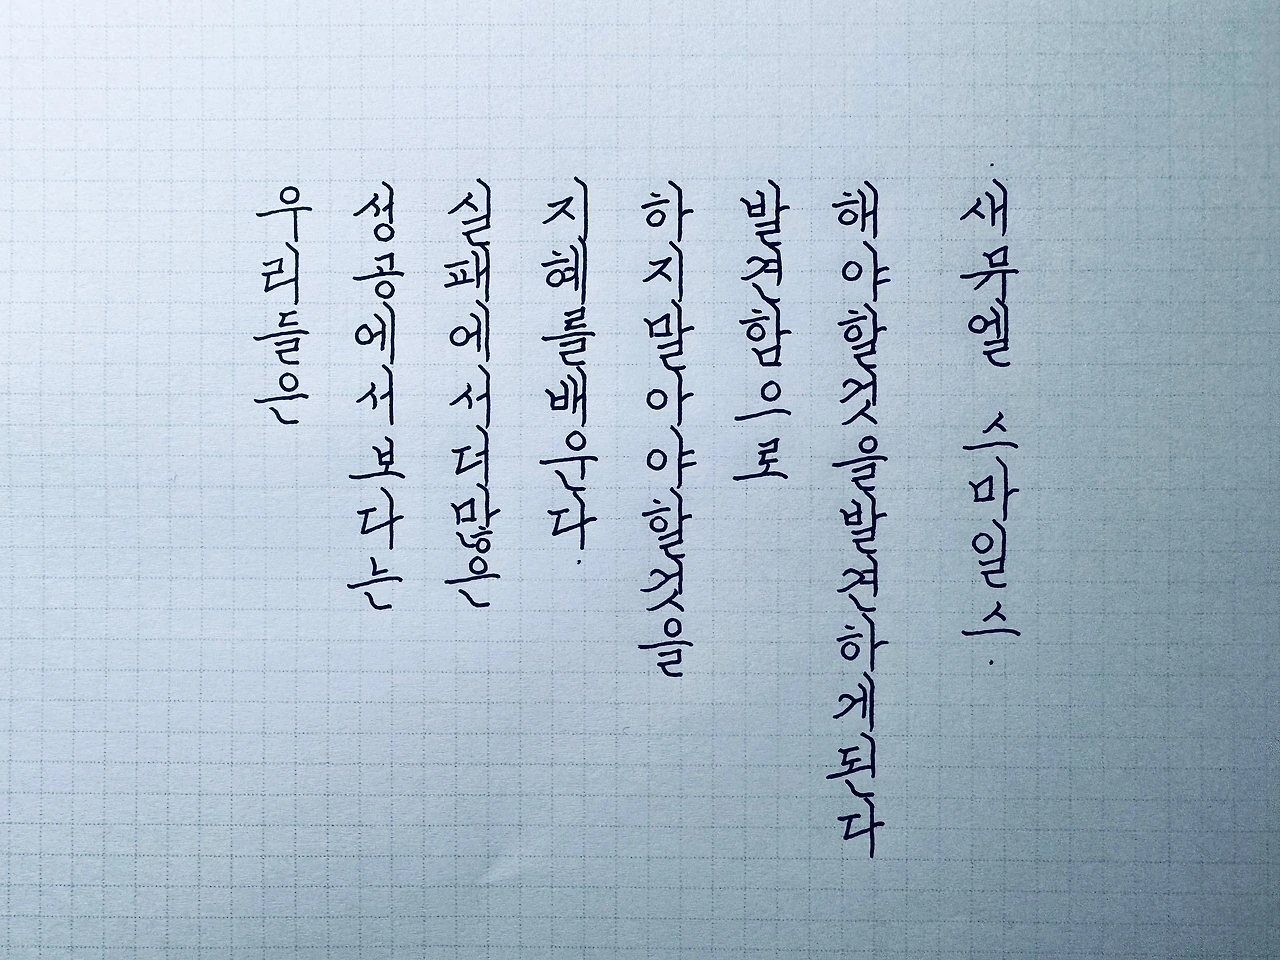 우리들은
성공에서보다는
실패에서더많은
지혜를배운다.
하지말아야할것을
발견함으로
해야할것을발견하게된다
·새뮤엘 스마일스.